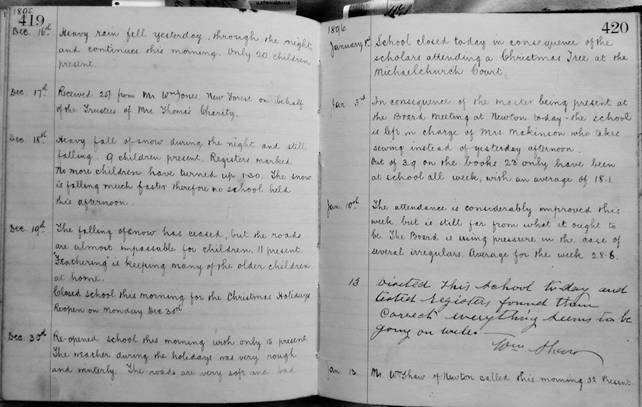 1895
419
Dec. 16th Heavy rain fell yesterday, through the night,
and continues this morning. Only 20 children
present.
Dec 17th Received 25/- from Mr Wm Jones, New Forest on behalf
of the Trustees of Mrs Thomas' Charity.
Dec 18th Heavy fall of snow during the night and still
falling. 9 children present. Registers marked.
No more children have turned up 1.30. The snow
is falling much faster therefore no school held
this afternoon.
Dec. 19th The falling of snow has ceased, but the roads
are almost impassable for children. 11 present.
"Feathering" is keeping many of the older children
at home.
Closed school this morning for the Christmas Holidays
Reopen on Monday Dec 30th
Dec. 30th Re-opened school this morning with only 15 present
The weather during the holidays was very rough
and winterly. The roads are very soft and bad.
1896
420
January 1st School closed today in consequence of the
scholars attending a Christmas Tree at the
Michaelchurch Court.
Jan. 3rd In consequence of the master being present at
the Board Meeting at Newton today - the school
is left in charge of Mrs. Makinson who takes
sewing instead of yesterday afternoon.
Out of 39 on the books 23 only have been
at school all week, with an average of 18.1.
Jan. 10th The attendance is considerably improved this
week but is still far from what it ought to
be. The Board is using pressure in the case of
several irregulars. Average for the week 28.6.
13 Visited this School today and
tested registers found them
Correct everything seems to be
going on well.
Wm Shaw
Jan 13. Mr. Wm Shaw of Newton called this morning. 32 Present.